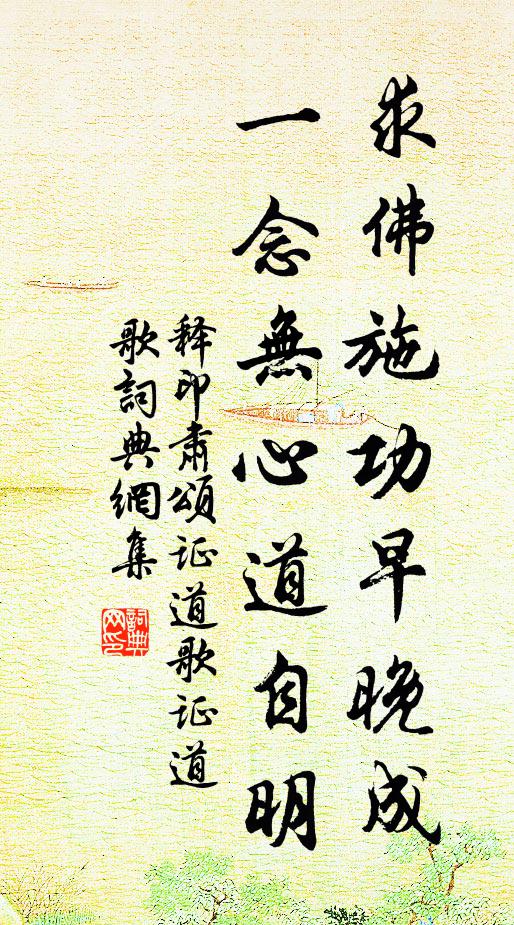 求佛施功早晚成
一念無心道自明
释印肅頌证道歌证道
歌詞典網集
詞典
网印